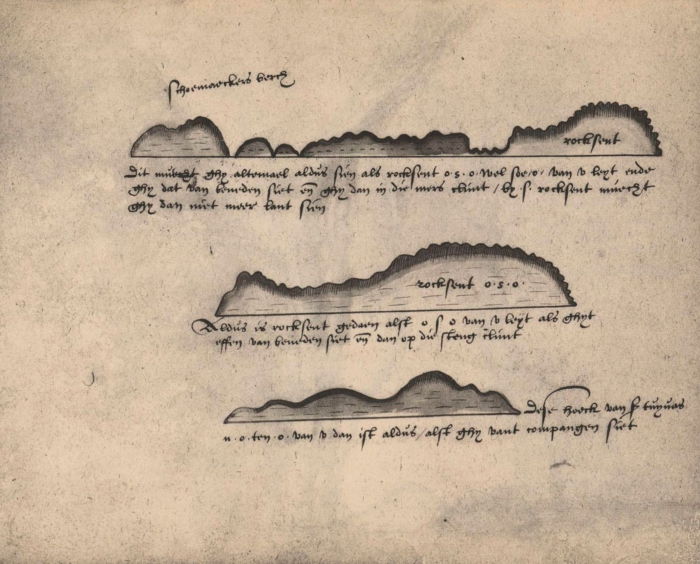 schoemaeckers berch
rocksent
Dit muecht ghy altemael aldus sien als rocksent o·s·o· wel soe·o· van v leyt ende
ghy dat van beneden siet en̄ ghy dan in die mers climt / by s. rocksent muecht
ghy dan niet meer lant sien
rocksent o·s·o·
Aldus is rocksent gedaen alst o s o van v leyt als ghyt
effen van beneden siet en̄ dan op die steng climt
Dese hoeck van
n·o·ten·o· van v dan ist aldus / alst ghy vant compangen siet